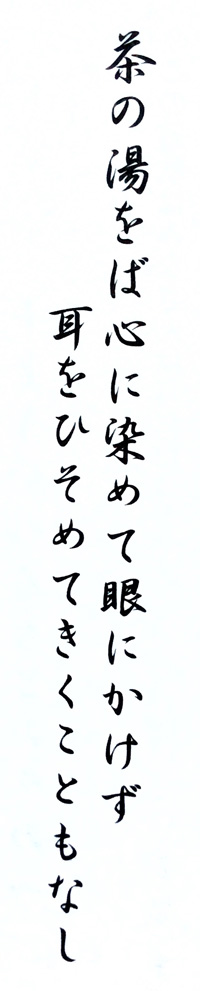 茶の湯をば心に染めて眼にかけず
耳をひそめてきくこともなし